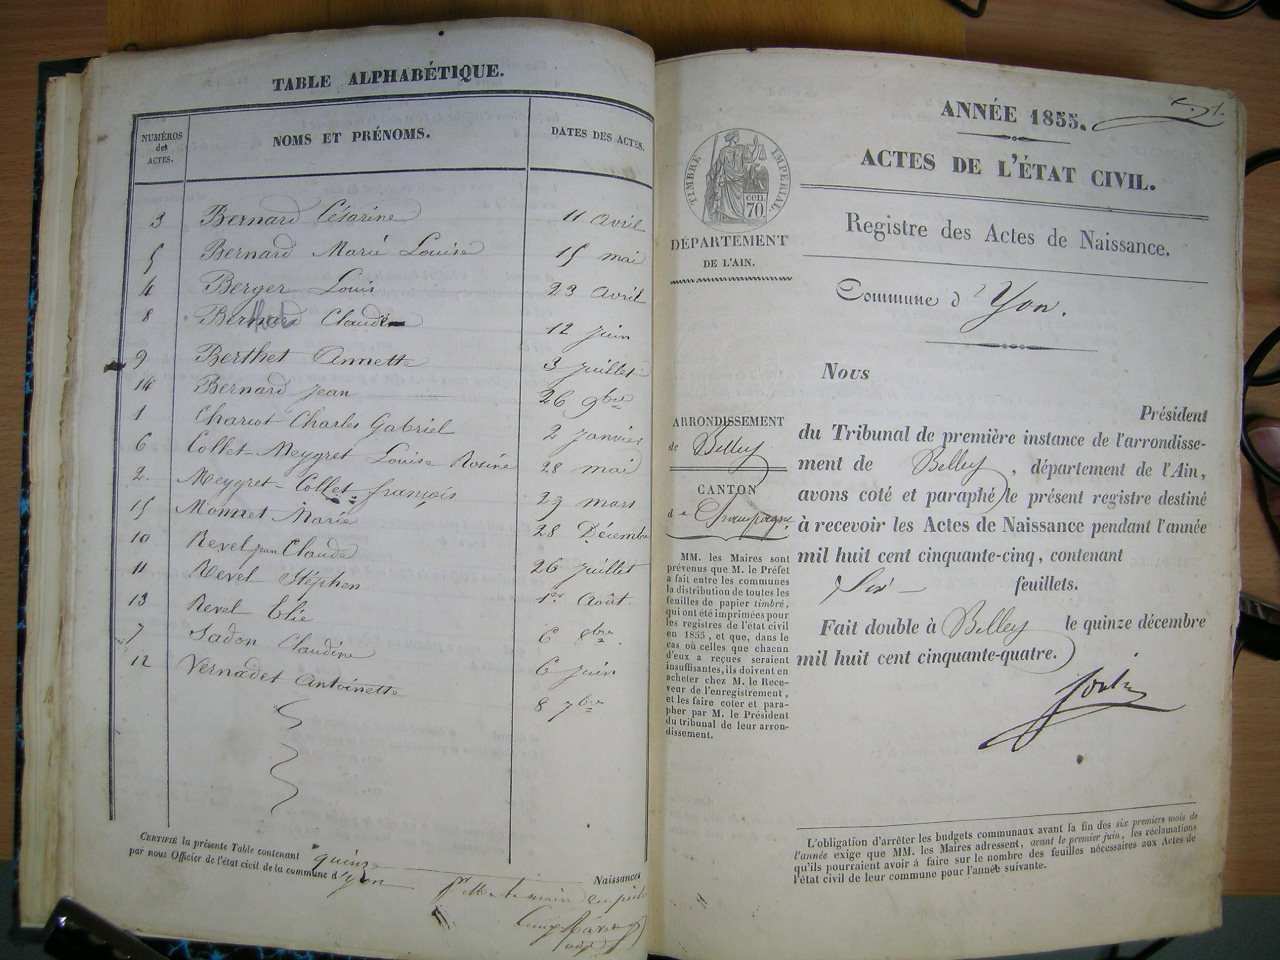 TABLE ALPHABÉTIQUE.
NUMÉROS des ACTES.
NOMS ET PRÉNOMS.
DATES DES ACTES.
3 Bernard Césarine 11 avril
5 Bernard Marie Louise 15 mai
4 Berger Louis 23 avril
8 Bernard Claudine 12 juin
9 Berthet Annette 3 juillet
14 Bernard Jean 26 9bre
1 Charcot Charles Gabriel 2 janvier
6 Collet-Meygret Louise 28 mai
2. Meygret-Collet françois 29 mars
15 Monnet Marie 28 Décembre
10 Revel jean Claude 26 juillet
11 Revel Stéphen 1er Août.
13 Revel Elie 6 8bre.
7 Sadon Claudine 6 juin
12 Vernadet Antoinette 8 7bre
CERTIFIÉ la présente Table contenant quinze Naissances
par nous Officier de l'état civil de la commune d'Yon
ANNÉE 1855.
ACTES DE L'ÉTAT CIVIL.
TIMBRE IMPÉRIAL.
CEN. 70
DÉPARTEMENT
DE L'AIN.
Registre des Actes de Naissance.
Commune d'Yon.
Nous
Président
du Tribunal de première instance de l'arrondisse-
ment de Belley, département de l'Ain,
avons coté et paraphé le présent registre destiné
à recevoir les Actes de Naissance pendant l'année
mil huit cent cinquante-cinq, contenant
Six feuillets.
Fait double à Belley le quinze décembre
mil huit cent cinquante-quatre.
ARRONDISSEMENT
de Belley
CANTON
de Champagne
MM. les Maires sont
prévenus que M. le Préfet
a fait entre les communes
la distribution de toutes les
feuilles de papier timbré,
qui ont été imprimées pour
les registres de l'état civil
en 1855, et que, dans le
cas où celles que chacun
d'eux a reçues seraient
insuffisantes, ils doivent en
acheter chez M. le Rece-
veur de l'enregistrement,
et les faire coter et para-
pher par M. le Président
du tribunal de leur arron-
dissement.
L'obligation d'arrêter les budgets communaux avant la fin des six premiers mois de
l'année exige que MM. les Maires adressent, avant le premier juin, les réclamations
qu'ils pourraient avoir à faire sur le nombre des feuilles nécessaires aux Actes de
l'état civil de leur commune pour l'année suivante.